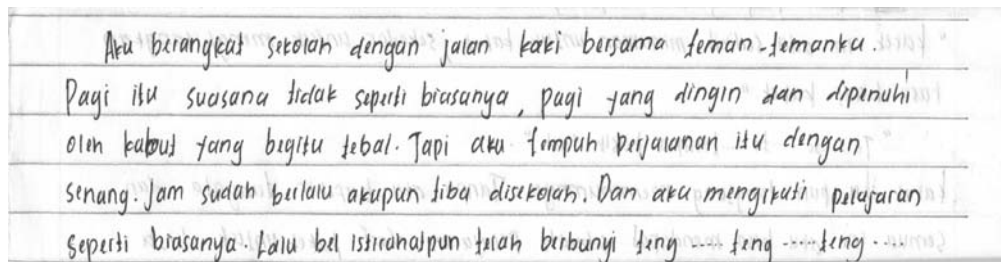 Aku berangkat sekolah dengan jalan kaki bersama teman-temanku.
Pagi itu suasana tidak seperti biasanya, pagi yang dingin dan dipenuhi
oleh kabut yang begitu tebal. Tapi aku tempuh perjalanan itu dengan
senang. Jam sudah berlalu akupun tiba disekolah. Dan aku mengikuti pelajaran
seperti biasanya. Lalu bel istirahatpun telah berbunyi teng .... teng ....teng ....